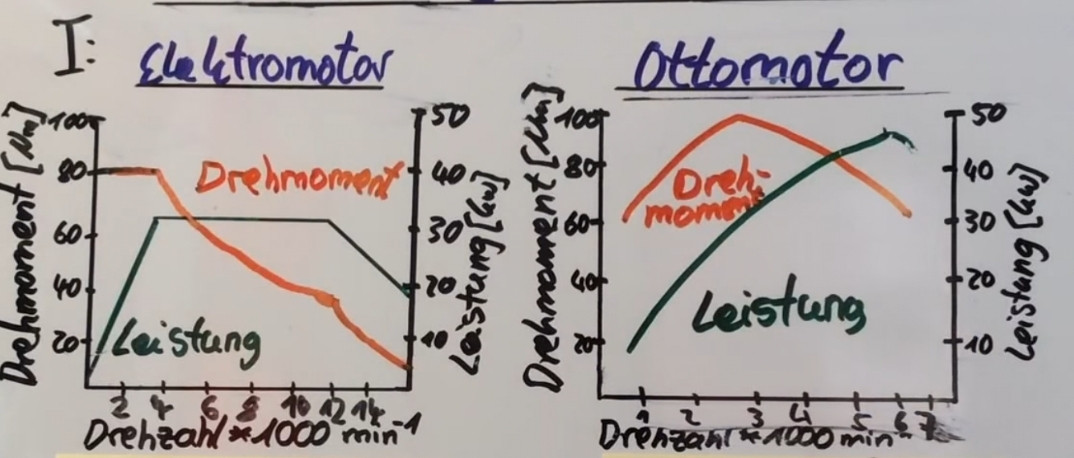 I:
Elektromotor
Drehmoment [Nm]
100
80
60
40
20
Drehmoment
Leistung
50
40
30
20
10
Leistung [kw]
2 4 6 8 10 12 14
Drehzahl * 1000 min-1
Ottomotor
Drehmoment [Nm]
100
80
60
40
20
Dreh-
moment
Leistung
50
40
30
20
10
Leistung [kw]
1 2 3 4 5 6 7
Drehzahl * 1000 min